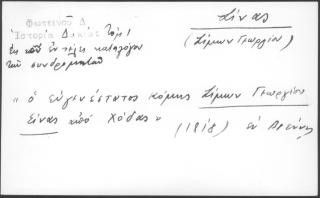 Φωτεινού Δ.
Ἱστορία Δακίας Τόμ. 1
Ἐκ τοῦ ἐν τέλει καταλόγου
τῶν συνδρομητῶν
Σίνας
(Σίμων Γεωργίου)
"ὁ εὐγενέστατος κόμης Σίμων Γεωργίου
Σίνας ἀπό Χόδας"
(1818) ἐν Βιέννῃ